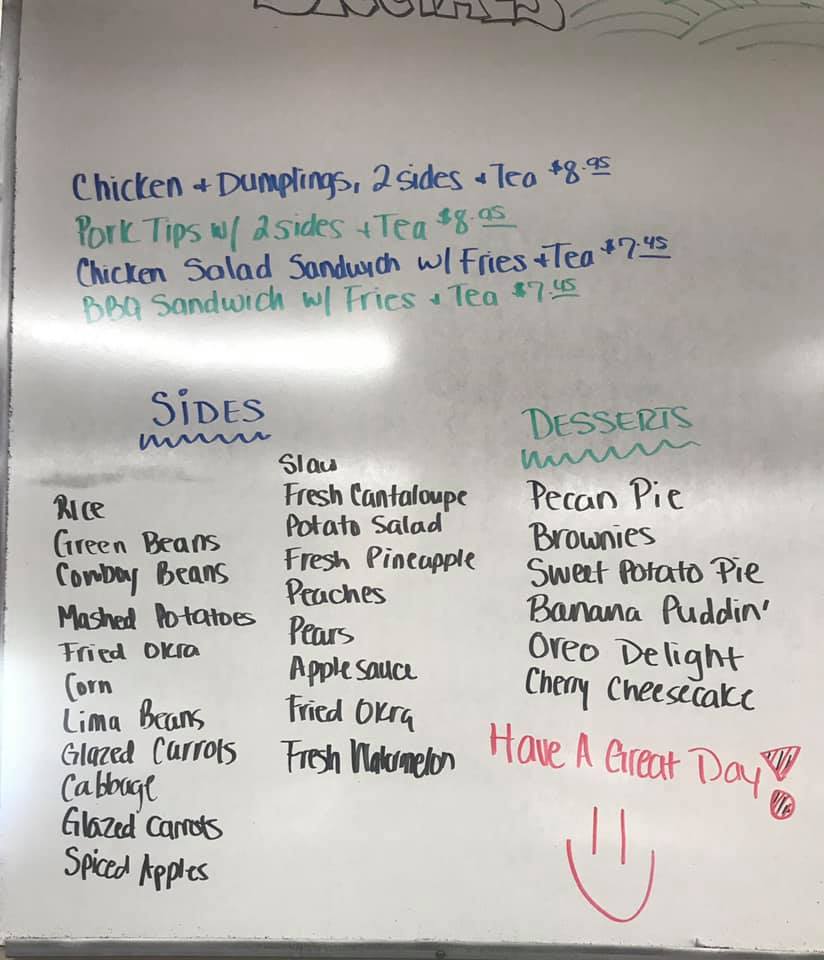 SPECIALS
Chicken + Dumplings, 2 sides + Tea $8.95
Pork Tips w/ 2 sides + Tea $8.95
Chicken Salad Sandwich w/ Fries + Tea $7.45
BBQ Sandwich w/ Fries + Tea $7.45
SiDES
Rice
Green Beans
Cowboy Beans
Mashed Potatoes
Fried Okra
Corn
Lima Beans
Glazed Carrots
Cabbage
Glazed Carrots
Spiced Apples
Slaw
Fresh Cantaloupe
Potato Salad
Fresh Pineapple
Peaches
Pears
Applesauce
Fried Okra
Fresh Watermelon
DESSERTS
Pecan Pie
Brownies
Sweet Potato Pie
Banana Puddin'
Oreo Delight
Cherry Cheesecake
Have A Great Day!